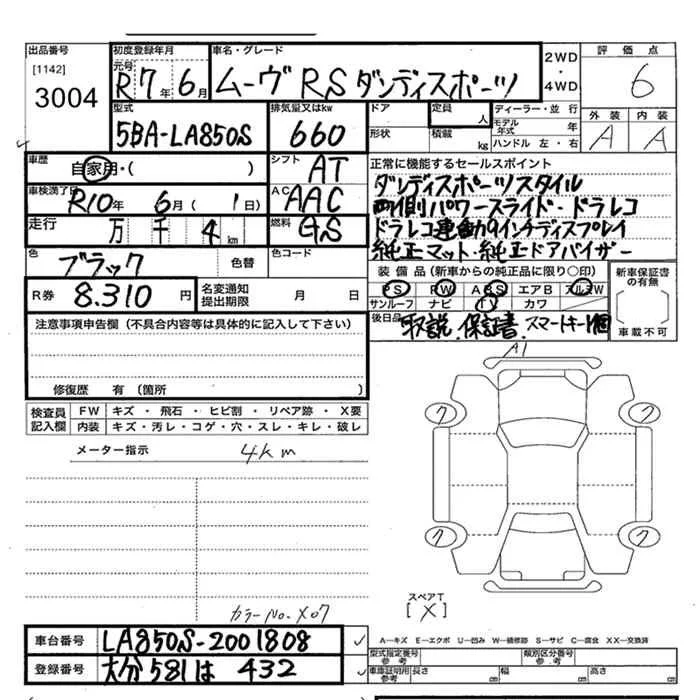 出品番号
[1142]
3004
初度登録年月
元号
R7年6月
車名・グレード
ムーヴ RS ダンディスポーツ
2WD
・
4WD
評価点
6
型式
5BA-LA850S
排気量又はkw
660
ドア
形状
定員
人
積載
kg
ディーラー・並行
モデル年式 年
ハンドル 左・右
外装 内装
A A
車歴
自家用・( )
シフト
AT
正常に機能するセールスポイント
車検満了日
R10年 6月( 1日)
AC
AAC
ダンディスポーツスタイル
両側パワースライド・ドラレコ
走行
万 千 4 km
燃料
GS
ドラレコ連動9インチディスプレイ
純正マット・純正ドアバイザー
色
ブラック
色替
色コード
装備品(新車からの純正品に限り○印)
PS PW ABS エアB アルミW
サンルーフ ナビ TV カワ
新車保証書の有無
車載不可
R券
8.310円
名変通知
提出期限
月 日
後日品
取説.保証書.スマートキー1個
注意事項申告欄(不具合内容等は具体的に記入して下さい)
修復歴 有(箇所 )
検査員
記入欄
FW キズ・飛石・ヒビ割・リペア跡・X要
内装 キズ・汚レ・コゲ・穴・スレ・キレ・破レ
メーター指示
4km
A1
7
7
7
7
スペアT
[X]
カラーNo.X07
車台番号
LA850S-2001808
登録番号
大分 581 は 432
A―キズ E―エクボ U―凹み W―補修跡 S―サビ C―腐食 XX―交換済
型式指定番号
参考
類別区分番号
参考
車庫証明用
参考
長さ cm
幅 cm
高さ cm